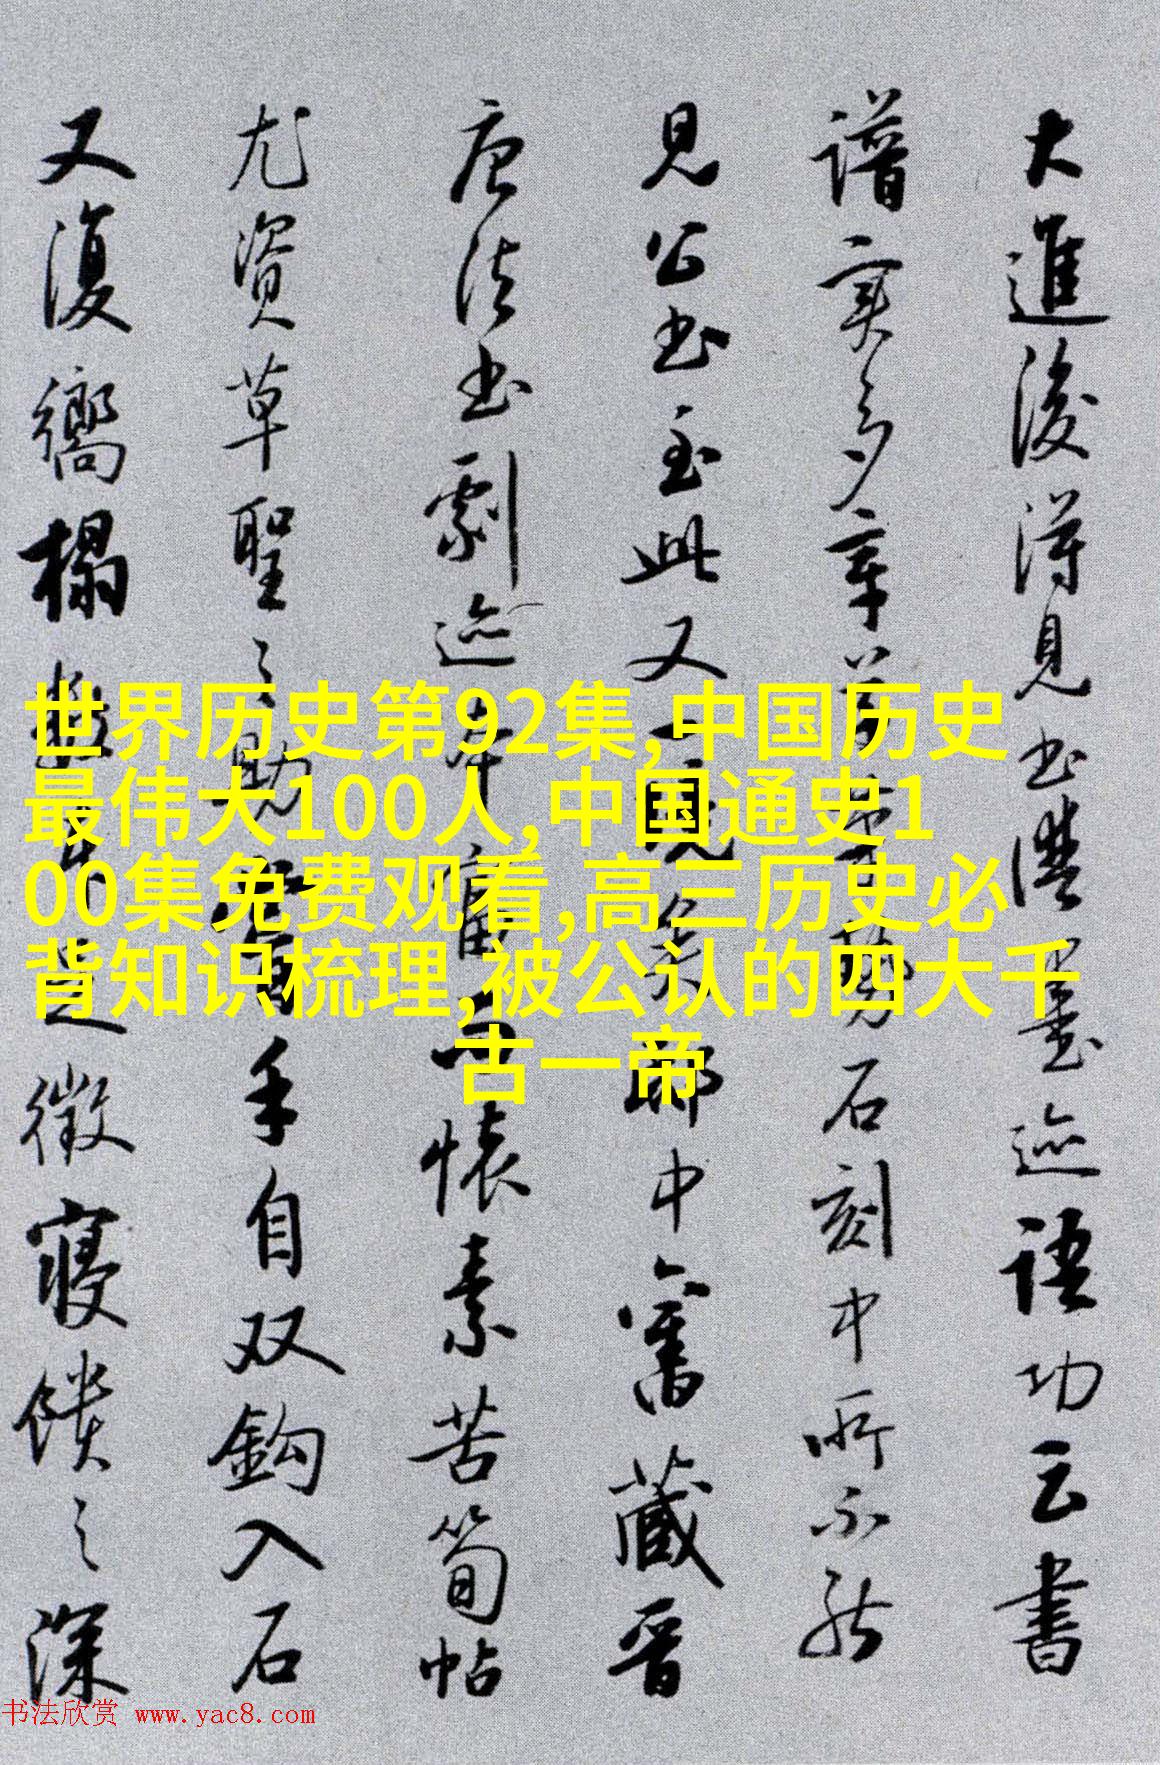 大進後得見书譜墨迹語功云書
譜实多章草势石刻中所不能
見公书至此又一邸中舊藏晋
唐法书劇迹懐素苦筍帖
尤資草聖之助手自双鈎入石
又復嚮榻徵寢饋之深
世界历史第92集,中国历史
最伟大100人,中国通史1
00集免费观看,高三历史必
背知识梳理,被公认的四大千
古一帝
书法欣赏 www.yac8.com